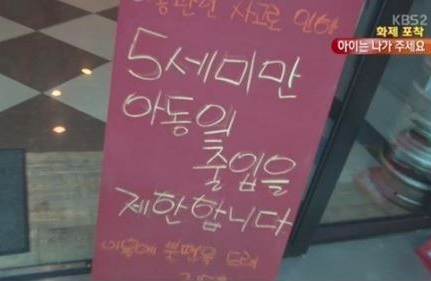 KBS2
화제 포착
아이는 나가 주세요
사고로 인하
5세미만
아동의
출입을
제한합니다
이용에 불편을 드려